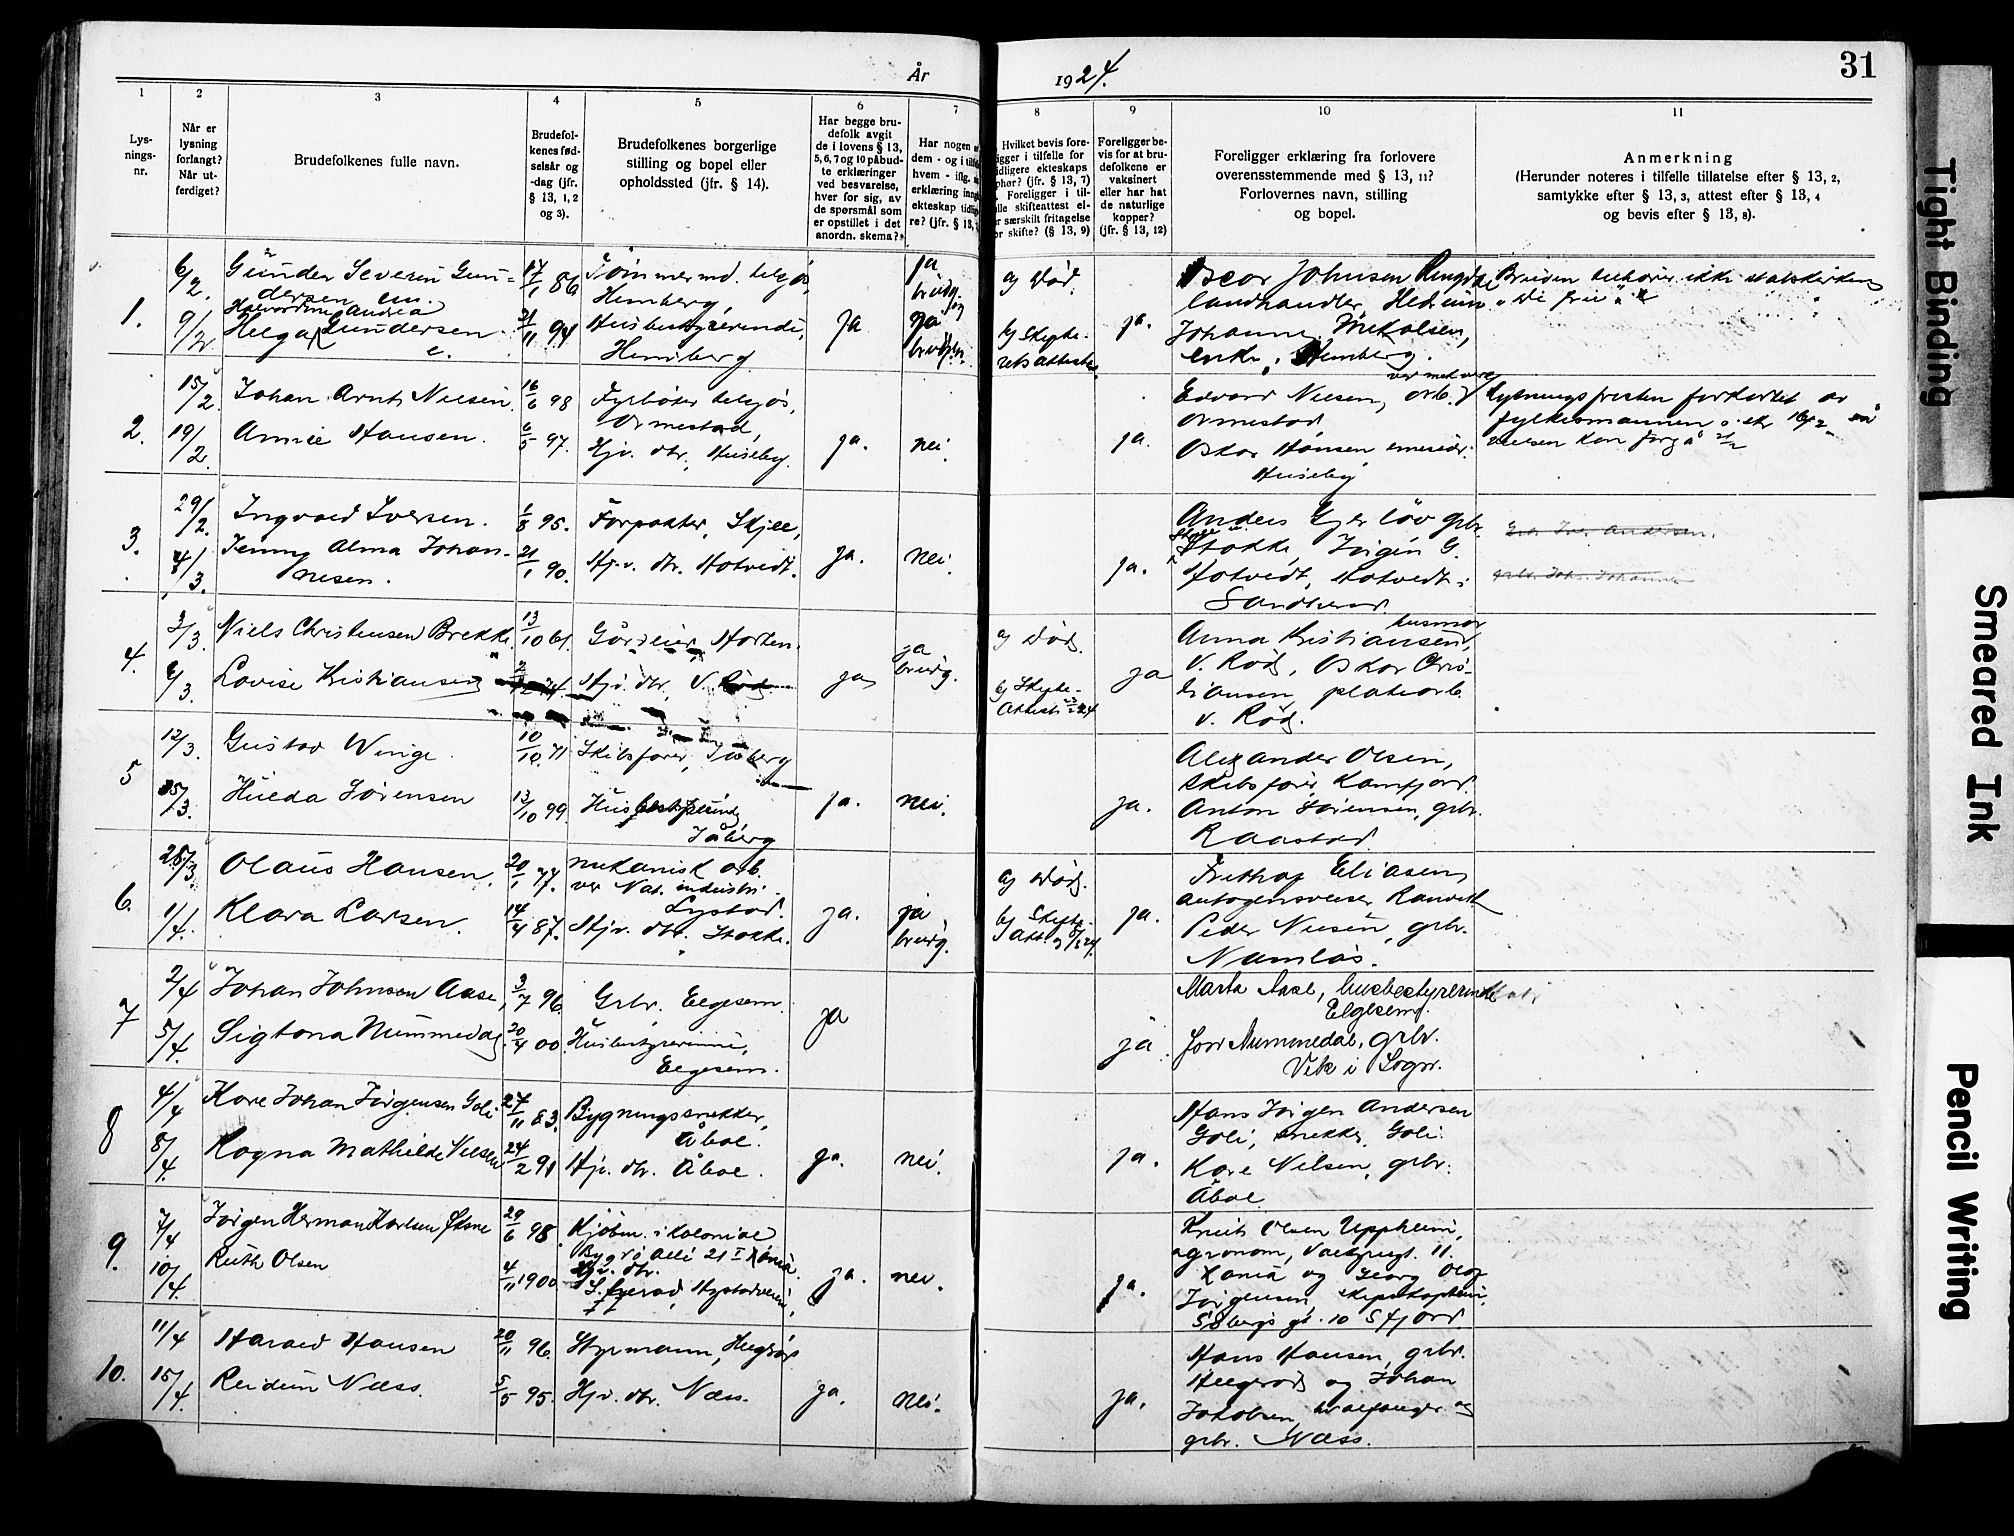 År 1924. 31
1 2 3 4 5 6 7 8 9 10 11
Lys-
nings-
nr.
Når er
lysning
forlangt?
Når ut-
ferdiget?
Brudefolkenes fulle navn.
Brudefol-
kenes fød-
selsår og
-dag (jfr.
§ 13, 1, 2
og 3).
Brudefolkenes borgerlige
stilling og bopel eller
opholdssted (jfr. § 14).
Har begge bru-
defolk avgit
de i lovens § 13,
5, 6, 7 og 10 påbud-
te erklæringer
ved besvarelse,
hver for sig, av
de spørsmål som
er opstillet i det
anordn. skema?
Har nogen
dem - og i tilf
hvem - iflg.
erklæring inng
ekteskap tidlig
re? (jfr. § 13,
Hvilket bevis fore-
igger i tilfelle for
idligere ekteskaps
phør? (jfr. § 13, 7)
Foreligger i til-
lle skifteattest el-
r særskilt fritagelse
or skifte? (§ 13, 9)
Foreligger be-
vis for at bru-
defolkene er
vaksinert
eller har hat
de naturlige
kopper?
(jfr. § 13, 12)
Foreligger erklæring fra forlovere
overensstemmende med § 13, 11?
Forlovernes navn, stilling
og bopel.
Anmerkning
(Herunder noteres i tilfelle tillatelse efter § 13, 2,
samtykke efter § 13, 3, attest efter § 13, 4
og bevis efter § 13, 8).
1.
6/2.
9/2
Gunder Severin Gun-
dersen em.
Halvordine Andrea
Helga Gundersen
e.
17/1 86
21/11 94
Tømmermd.
Hemberg,
Husbestyrerinde,
Hemberg
ja
ja
brudg.
ja
bruden.
a) død.
b) Skifte-
retsattester.
ja.
Oscar Johnsen
landhandler Hedrum
Johanne Mikalsen,
enke, Hemberg.
Bruden tilhører ikke statskirken
2.
15/2.
19/2.
Johan Arnt Nilsen
Annie Hansen.
16/6 98
6/5 97.
Fyrbøter
Ormestad,
Hjv. dtr. Huseby.
ja.
nei.
ja.
Edvard Nilsen, arb.
Ormestad
Oskar Hansen
Huseby
Lysningsfristen forkortet av
fylkesmannen
vielsen kan foregå
3.
29/2.
4/3.
Ingvald Iversen.
Jenny Alma Johan-
nesen.
1/8 95.
21/1 90.
Forpakter, Skjee,
Hjv. dtr. Hotvedt.
ja.
nei.
ja.
Anders Gjerløv grbr.
Stokke, Jørgen G.
Hotvedt, Hotvedt i
Sandherred
4.
3/3.
6/3.
Niels Christensen Brekke
Lovise Kristiansen
13/10 61.
Gårdeier Horten.
Hjv. dtr. V. Rød
ja
ja
brudg.
a) død.
b) Skifte-
Attest
ja
husmor
Anna Kristiansen,
V. Rød, Oskar Chris-
tiansen, platearb.
V. Rød.
5
12/3.
15/3.
Gustav Winge.
Hilda Sørensen
10/10. 71
13/10 99
Skibsfører, Jåberg
Husbestyrerinde,
Jåberg
ja.
nei.
ja.
Alexander Olsen,
skibsfører Kamfjord.
Anton Sørensen, grbr.
Raastad
6.
28/3.
1/4.
Olaus Hansen.
Klara Larsen.
20/1 77.
14/4 87.
mekanisk arb.
ved Nat. industri
Lystad.
Hjv. dtr. Stokke.
ja.
ja
brudg.
a) død.
b) Skifte-
att.
ja.
Fritthof Eliasen,
autogensveiser Ranvik
Peder Nilsen, grbr.
Namløs.
7
2/4
5/4.
Johan Johnsen Aase,
Sigtona Nummedal
3/7 96.
20/4 00.
Grbr. Elgesem.
Husbestyrerinne,
Elgesem.
ja
ja.
Marta Aase, husbestyrerinde
Elgesem.
Joar Nummedal, grbr.
Vik i Sogn.
8
4/4
8/4.
Kare Johan Jørgensen Goli
Ragna Mathilde Nilsen
27/11 83.
24/2 91
Bygningssnekker,
Åbol.
Hjv. dtr. Åbol.
ja.
nei.
ja.
Hans Jørgen Andersen
Goli, snekker, Goli.
Kare Nilsen, grbr.
Åbol
9.
7/4
10/4
Jørgen Herman Karlsen Østne
Ruth Olsen
29/6 98.
4/11 1900
Kjøbm. i kolonial
Bygdø Allé 21 I X ania.
Hjv. dtr.
ja.
nei.
ja.
Knut Olsen Uppheim,
agronom, Valkyriegt. 11.
X ania og Georg Olaf
Jørgensen, skipskaptein,
10 S fjord
10.
11/4
15/4.
Harald Hansen
Reidun Næss.
20/11 96.
5/5 95.
Styrmann, Helgerød
Hjv. dtr. Næss.
ja.
nei.
ja.
Hans Hansen, grbr.
Helgerød og Johan
Jakobsen, hvalfanger og
grbr. Næss.
Tight Binding
Smeared Ink
Pencil Writing